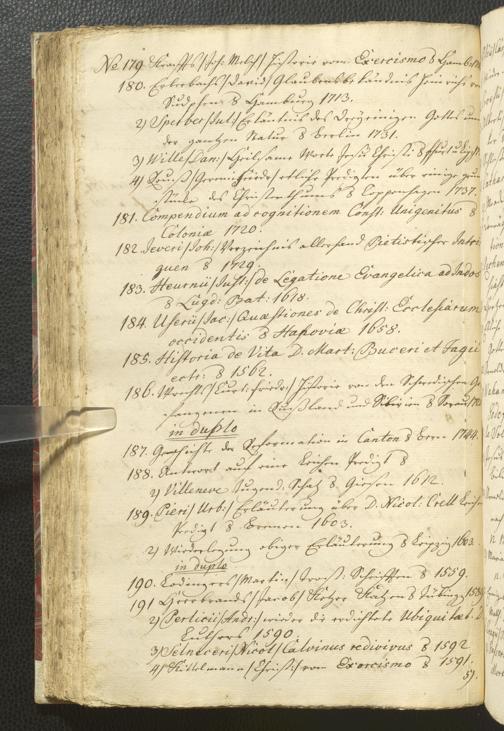 No 179. Krafft /Joh: Melch:/ Historie vom Exorcismo 8 Hamburg
180. /David/ Glaubensbekändnis Heinrichs von
Sudphen 8 Hamburg 1713.
2) Sperber/Jul:/ des Dreyeinigen Gottes und
der gantzen Natur 8 Berlin 1731.
3) Wille/Dan:/ Heilsame Worte Jesu Christi 8
4) etliche Predigten über einige
des Christenthums 8 Coppenhagen 1737.
181. Compendium ad cognitionem Const: Unigenitus 8
Coloniæ 1720.
182. Severi/Joh:/ Verzeichnis allerhand Pietistischer Intri
guen 8 1729.
183. Heurnii/Just:/ de Legatione Evangelica ad Indos
8 Lugd: Bat: 1618.
184. Userii/Jac:/ Quæstiones de Christ: Ecclesiarum
occidentis 8 Hanoviæ 1658.
185. Historia de Vita D. Mart: Buceri et Fagii
8 1562.
186. /Curt: Friedr:/ Historie von den Schwedischen Ge
fangenen in Rußland und Sibirien 8 Sorau
in duplo
187. Geschichte der Reformation in Canton 8 Bern 1744.
188. Antwort auf eine Leichen Predigt 8
1) Villeneve Jugend-Schatz 8 Giessen 1612.
189. Pierii/Urb:/ Erläuterung über D. Nicol. Crell Leich
Predigt 8 Bremen 1603.
2) Wiederlegung obiger Erläuterung 8 Leipzig 1603.
in duplo
190. /Martin/ Trost: Schrifften 8 1559.
191 Heerbrandes/Jacob/ Ketzer Katzen 8 Tübing
2) Perlicii/Andr:/ wieder die erdichtete Ubiquitæt D.
Lutheri 1590.
3) Selnecceri/Nicol:/ Calvinus redivivus 8 1592
4) /Christi:/ vom Exorcismo 8 1591.
5).